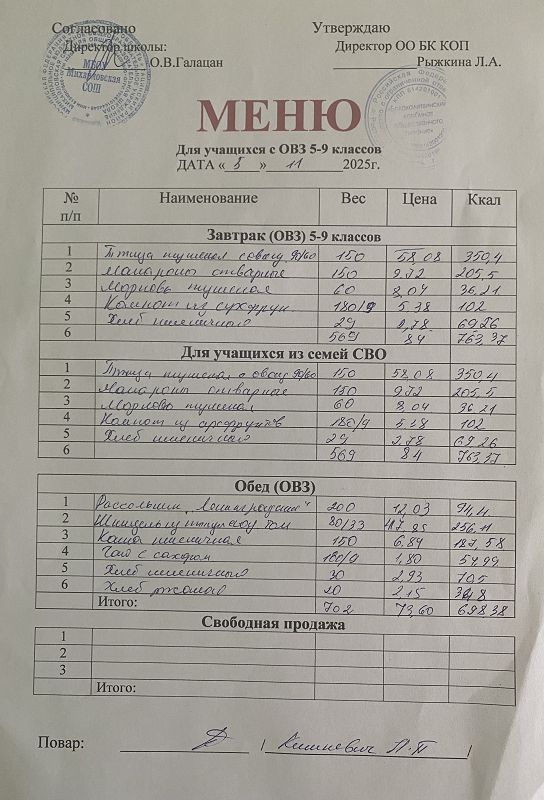 Согласовано Утверждаю
Директор школы: Директор ОО БК КОП
О.В.Галацан Рыжкина Л.А.
МБОУ
Михайловская
СОШ
МЕНЮ
Для учащихся с ОВЗ 5-9 классов
ДАТА « 5 » 11 2025г.
№ п/п Наименование Вес Цена Ккал
Завтрак (ОВЗ) 5-9 классов
1 Птица тушеная с овощ 90/60 150 58,08 350,4
2 Макароны отварные 150 9,72 205,5
3 Морковь тушеная 60 8,04 36,21
4 Компот из сухофрук. 180/9 5,38 102
5 Хлеб пшеничный 29 2,78 69,26
6 569 84 763,37
Для учащихся из семей СВО
1 Птица тушеная с овощ 90/60 150 58,08 350,4
2 Макароны отварные 150 9,72 205,5
3 Морковь тушеная 60 8,04 36,21
4 Компот из сухофруктов 180/9 5,38 102
5 Хлеб пшеничный 29 2,78 69,26
6 569 84 763,37
Обед (ОВЗ)
1 Рассольник „Ленинградский" 200 12,03 94,4
2 Шницель 80/33 256,11
3 Каша пшеничная 150 6,84 187,58
4 Чай с сахаром 180/9 1,80
5 Хлеб пшеничный 30 2,93
6 Хлеб ржаной 20 2,15
Итого: 702 73,60 698,38
Свободная продажа
1
2
3
Итого:
Повар: